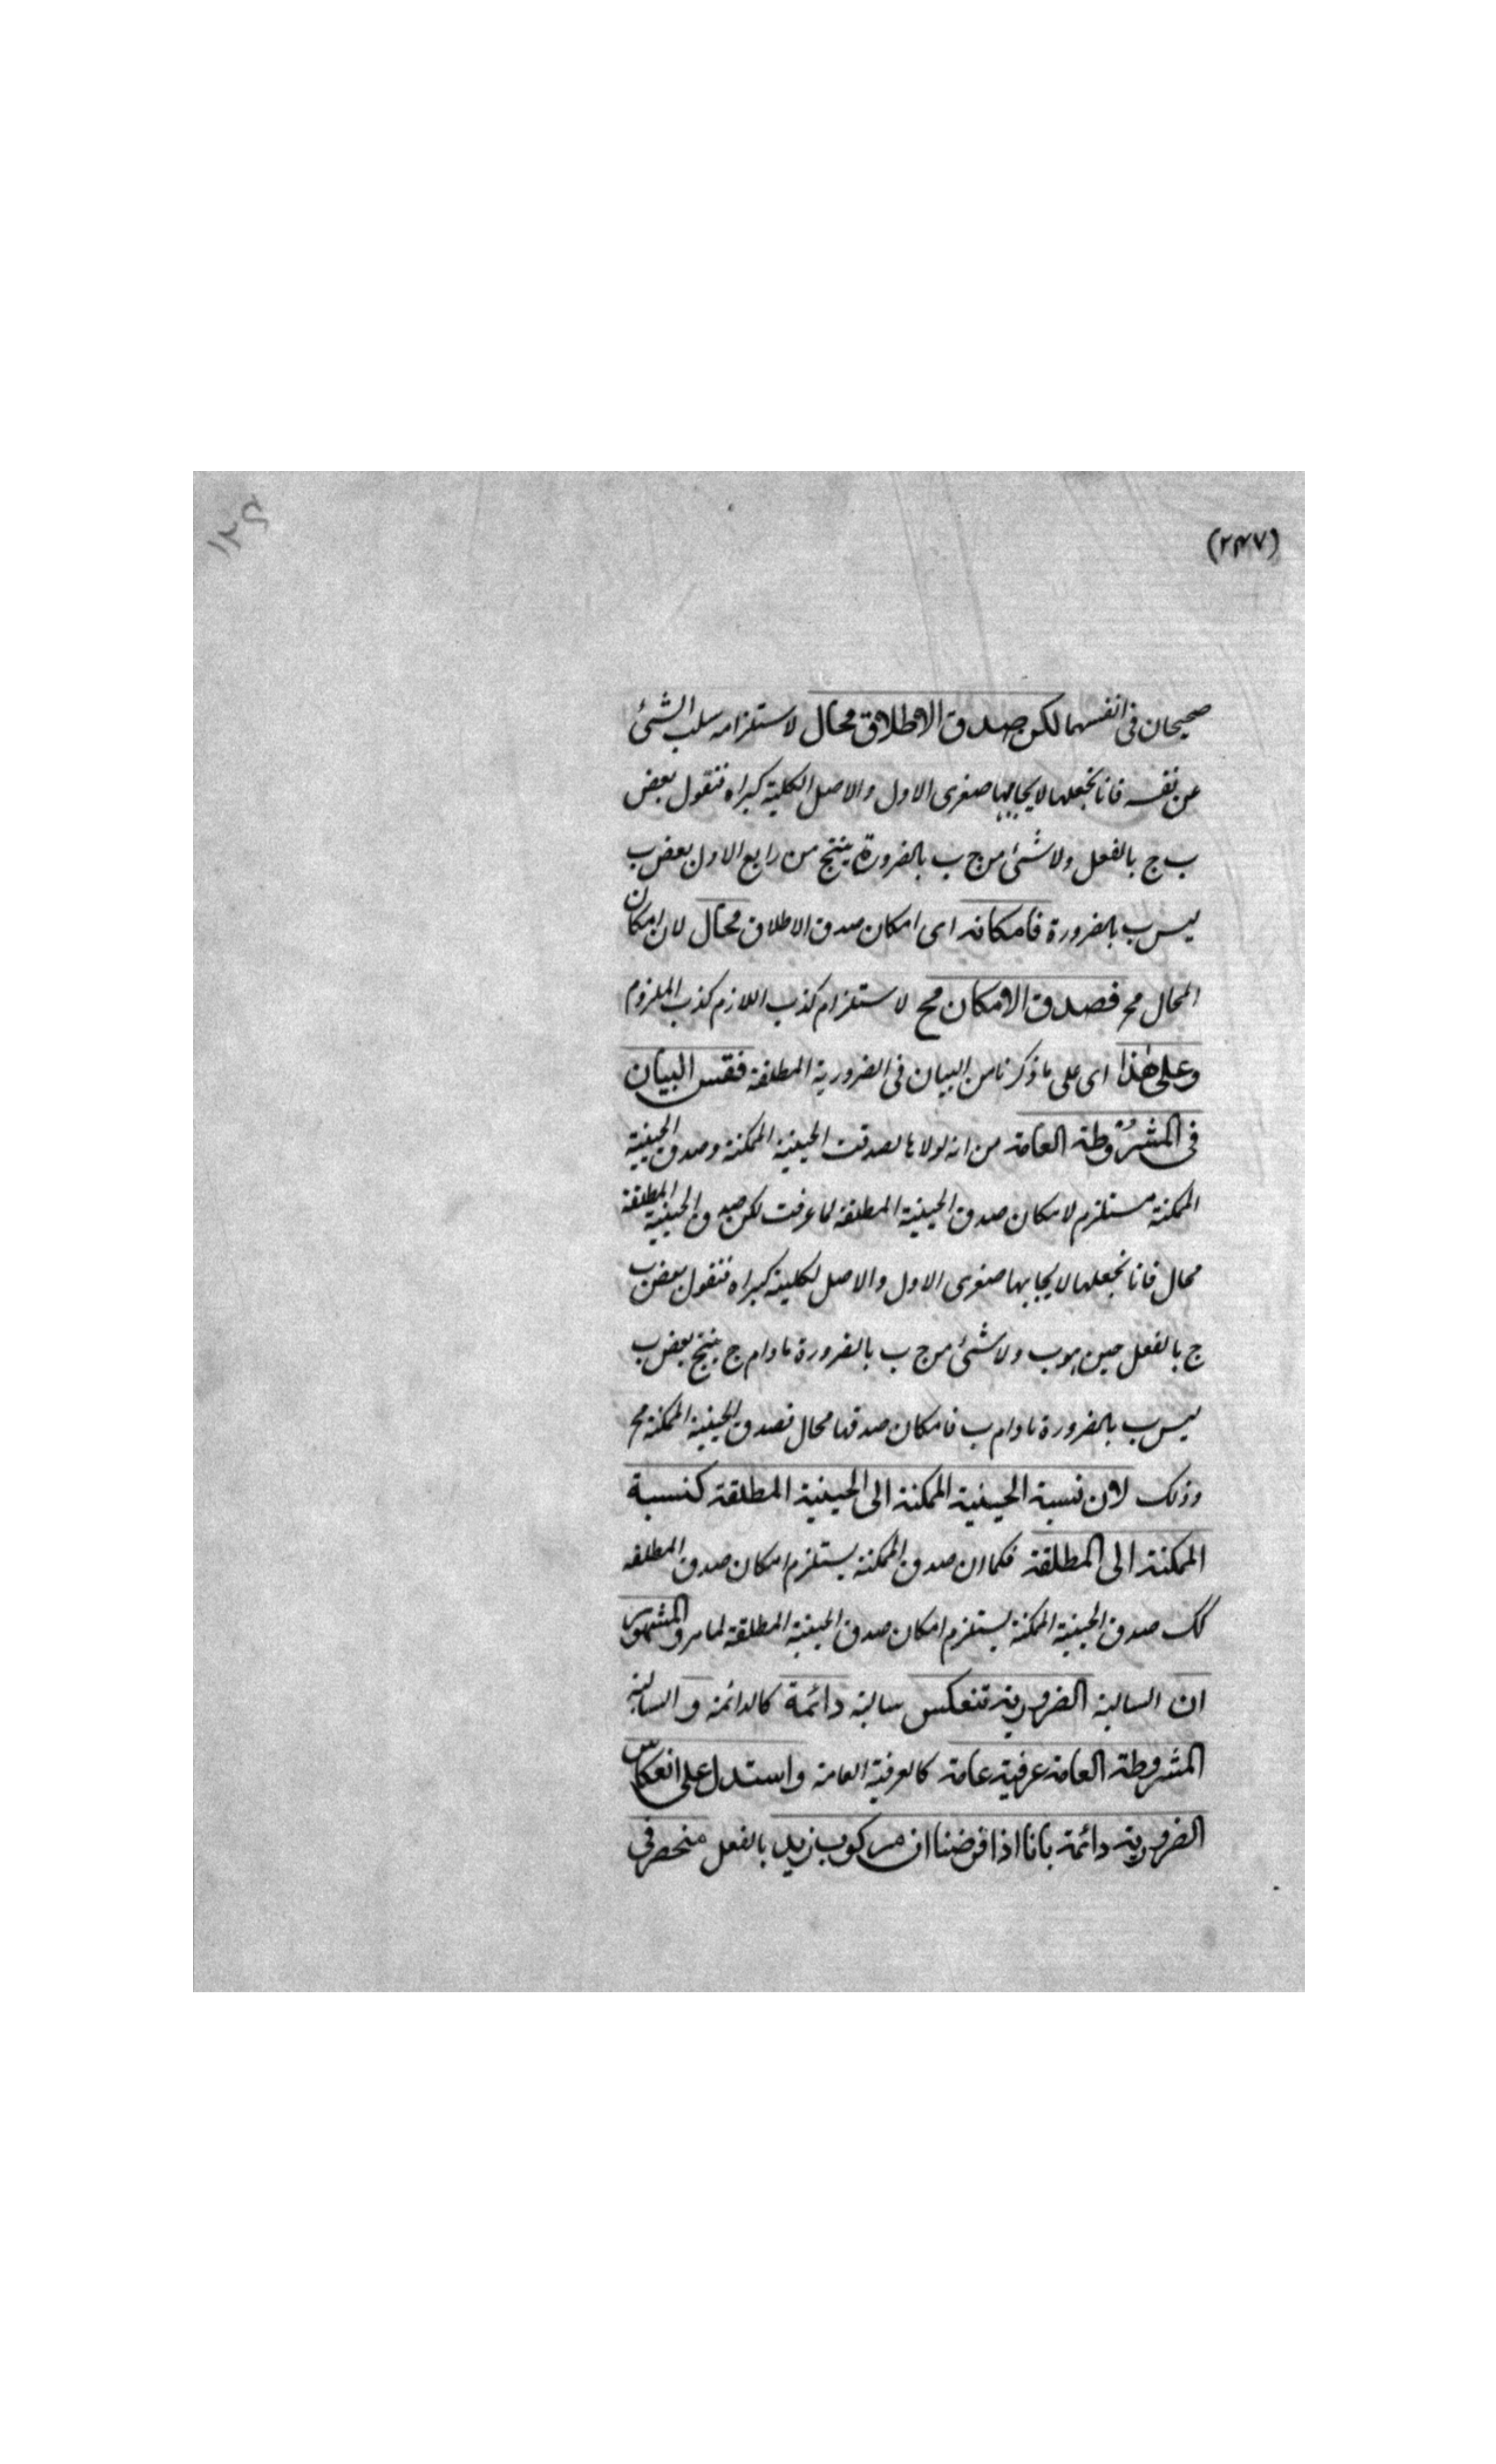 (٢٣٧)
١٢٤
صحيحان فى انفسهما لكن صدق الاطلاق محال لاستلزامه سلب الشئ
عن نفسه فانا نجعلها لايجابها صغرى الاول والاصل الكلية كبراه فنقول بعض
ب ج بالفعل ولا شئ من ج ب بالضرورة ينتج من رابع الاول بعض ب
ليس ب بالضرورة فامكانه اى امكان صدق الاطلاق محال لان امكان
المحال مح فصدق الامكان مح لاستلزام كذب اللازم كذب الملزوم
وعلى هذا اى على ما ذكرنا من البيان فى الضرورية المطلقة فقس البيان
فى المشروطة العامة من انه لولاها لصدقت الحينية الممكنة وصدق الحينية
الممكنة مستلزم لامكان صدق الحينية المطلقة لما عرفت لكن صدق الحينية المطلقة
محال فانا نجعلها لايجابها صغرى الاول والاصل لكليته كبراه فنقول بعض ب
ج بالفعل حين هو ب ولا شئ من ج ب بالضرورة مادام ج ينتج بعض ب
ليس ب بالضرورة مادام ب فامكان صدقها محال فصدق الحينية الممكنة مح
وذلك لان نسبة الحينية الممكنة الى الحينية المطلقة كنسبة
الممكنة الى المطلقة فكما ان صدق الممكنة يستلزم امكان صدق المطلقة
كك صدق الحينية الممكنة يستلزم امكان صدق الحينية المطلقة لما مر والمشهور
ان السالبة الضرورية تنعكس سالبة دائمة كالدائمة والسالبة
المشروطة العامة عرفية عامة كالعرفية العامة واستدل على انعكاس
الضرورية دائمة بانا اذا فرضنا ان مركوب زيد بالفعل منحصر فى